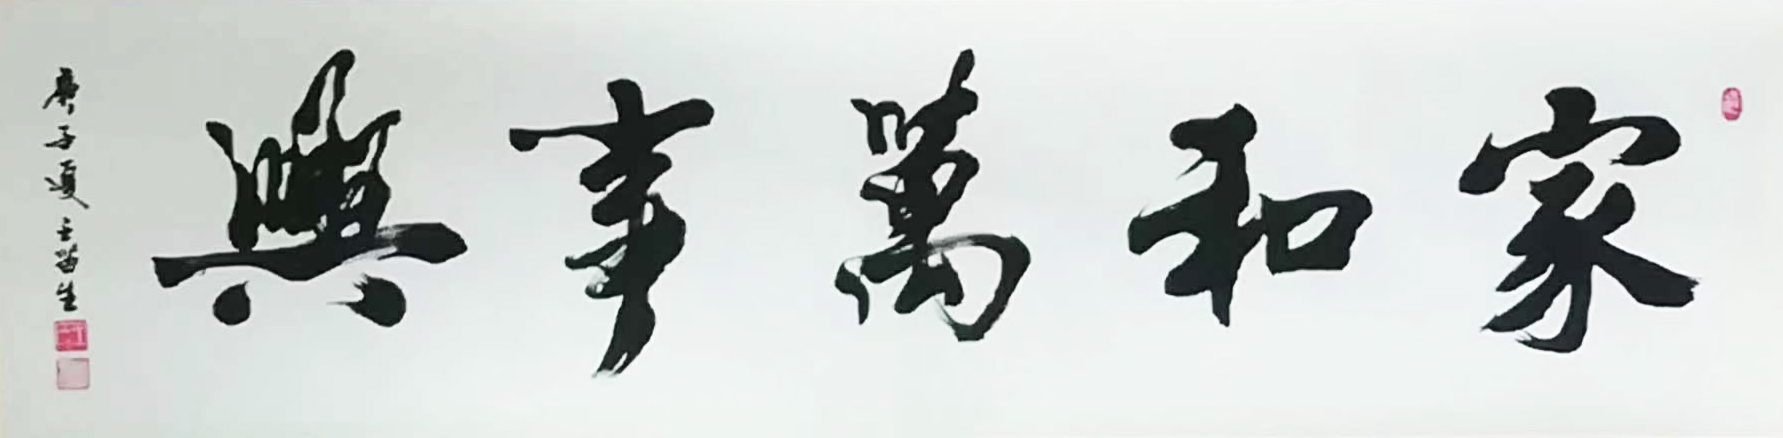 家和萬事興
庚子夏王笛生